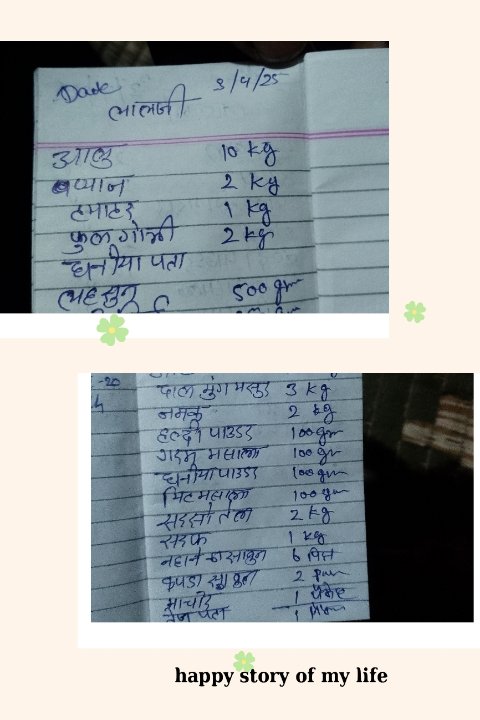 Date 3/4/25
लालजी
आलु 10 kg
प्यान 2 kg
टमाटर 1 kg
फुल गोभी 2 kg
धनीया पता
लहसुन 500 gm
-20
दाल मुंग मसुर 3 kg
नमक 2 kg
हल्दी पाउडर 100 gm
गरम मसाला 100 gm
धनीया पाउडर 100 gm
मिट मसाला 100 gm
सरसो तेल 2 kg
सरफ 1 kg
नहाने का साबुन 6 पिस
कपडा साबुन 2
माचीस 1 पैकेट
तेज पता 1
happy story of my life